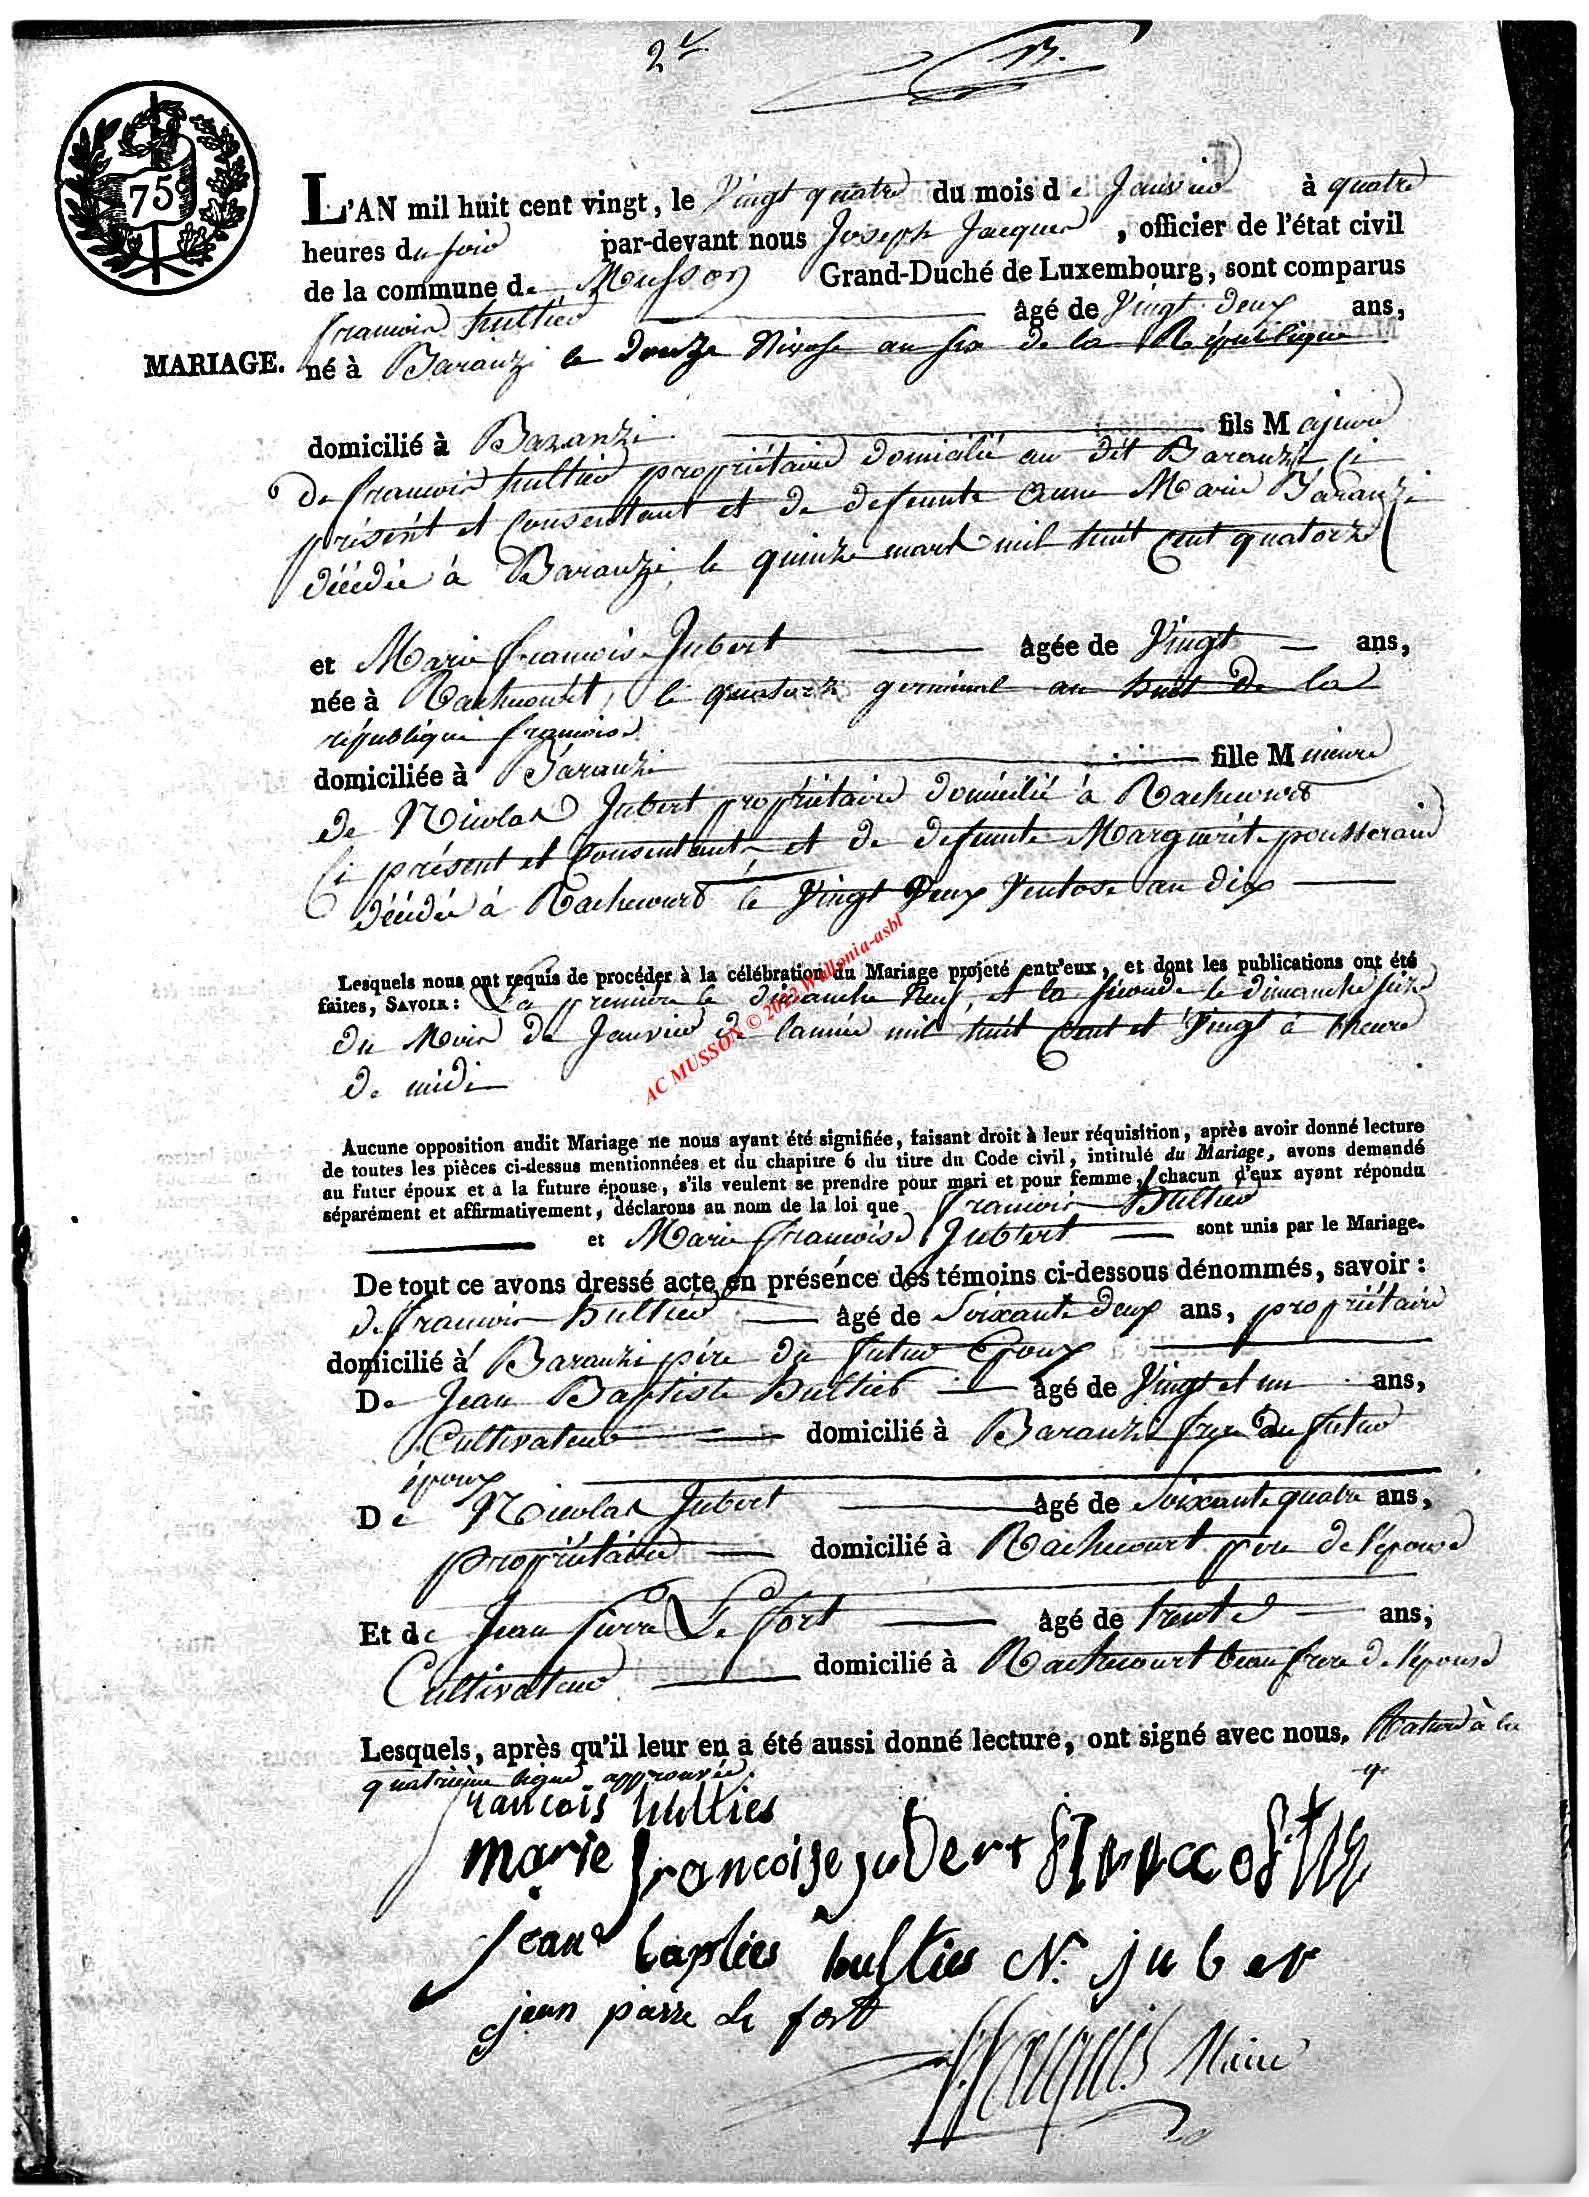 2e
75
L'AN mil huit cent vingt, le Vingt quatre du mois de Janvier à quatre
heures du soir par-devant nous Joseph Jacques, officier de l'état civil
de la commune de Musson Grand-Duché de Luxembourg, sont comparus
francois hultier âgé de Vingt deux ans,
MARIAGE. né à Baranzi le douze Nivose an six de la République
domicilié à Baranzi fils Majeur
de francois hultier propriétaire domicilié au dit Baranzi ci
présent et consentant et de defeunte Anne Marie Baranzi
décédée à Baranzi, le quinze mars mil huit cent quatorze
et Marie francoise Jubert âgée de Vingt ans,
née à Rachecourt, le quatorze germinal an huit de la
république francoise
domiciliée à Baranzi fille Mineure
de Nicolas Jubert propriétaire domicilié à Rachecourt
ci présent et consentant et de defeunte Marguerite pousseraud
décédée à Rachecourt le Vingt Deux Ventose an dix
Lesquels nous ont requis de procéder à la célébration du Mariage projeté entr'eux, et dont les publications ont été
faites, SAVOIR: La premiere le dimanche Neuf, et la seconde le dimanche seize
du Mois de Janvier de l'année mil huit cent et Vingt à l'heure
de midi
Aucune opposition audit Mariage ne nous ayant été signifiée, faisant droit à leur réquisition, après avoir donné lecture
de toutes les pièces ci-dessus mentionnées et du chapitre 6 du titre du Code civil, intitulé du Mariage, avons demandé
au futur époux et à la future épouse, s'ils veulent se prendre pour mari et pour femme, chacun d'eux ayant répondu
séparément et affirmativement, déclarons au nom de la loi que francois Hultier
et Marie francoise Jubtert sont unis par le Mariage.
De tout ce avons dressé acte en présence des témoins ci-dessous dénommés, savoir:
de francois hultier âgé de Soixante deux ans, propriétaire
domicilié à Baranzi père du futur Epoux
De Jean Baptiste hultier âgé de Vingt et un ans,
Cultivateur domicilié à Baranzi frere du futur
époux
De Nicolas Jubert âgé de Soixante quatre ans,
propriétaire domicilié à Rachecourt père de l'épouse
Et de Jean Pierre Le fort âgé de trente ans,
Cultivateur domicilié à Rachecourt beau frere de l'épouse
Lesquels, après qu'il leur en a été aussi donné lecture, ont signé avec nous. Rature à la
quatrième ligne approuvée.
francois hulties
marie francoise jubert
jean bapties hulties N. juber
jean pierre le fort
Jacques Maire
AC MUSSON © 2022 Wallonia-asbl